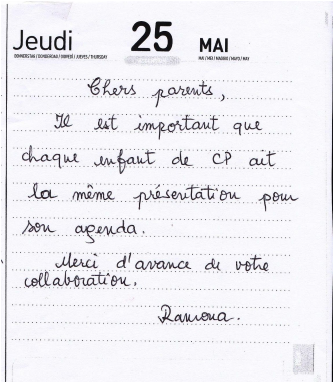 Jeudi 25 MAI
DONNERSTAG / DONDERDAG / GIOVEDÌ / JUEVES / THURSDAY
MAI / MEI / MAGGIO / MAYO / MAY
Chers parents,
Il est important que
chaque enfant de CP ait
la même présentation pour
son agenda.
Merci d'avance de votre
collaboration.
Ramona.